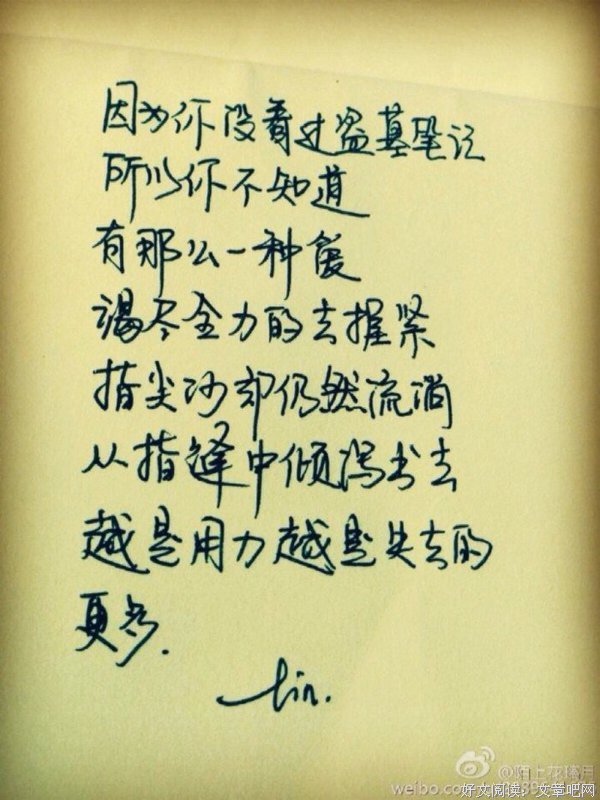 因为你没看过盗墓笔记
所以你不知道
有那么一种爱
竭尽全力的去握紧
指尖沙却仍然流淌
从指缝中倾泻出去
越是用力越是失去的
更多.
lin.
@陌上花璃用
weibo.com
好文阅读，文章吧网